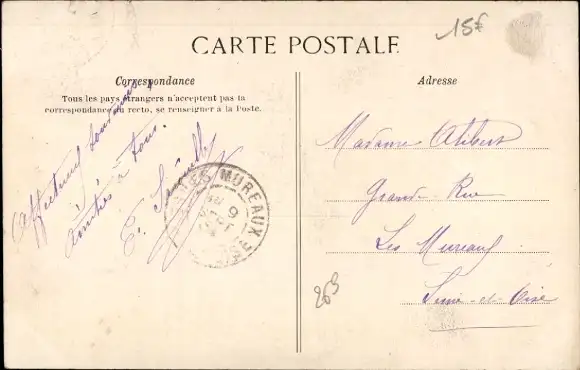 15f
CARTE POSTALE
Correspondance
Tous les pays étrangers n'acceptent pas la
correspondance au recto, se renseigner à la Poste.
Affectueux
Amitiés à tous.
E.
LES MUREAUX
9
Adresse
Madame Alibert
Grande Rue
Les Mureaux
Seine-et-Oise
269